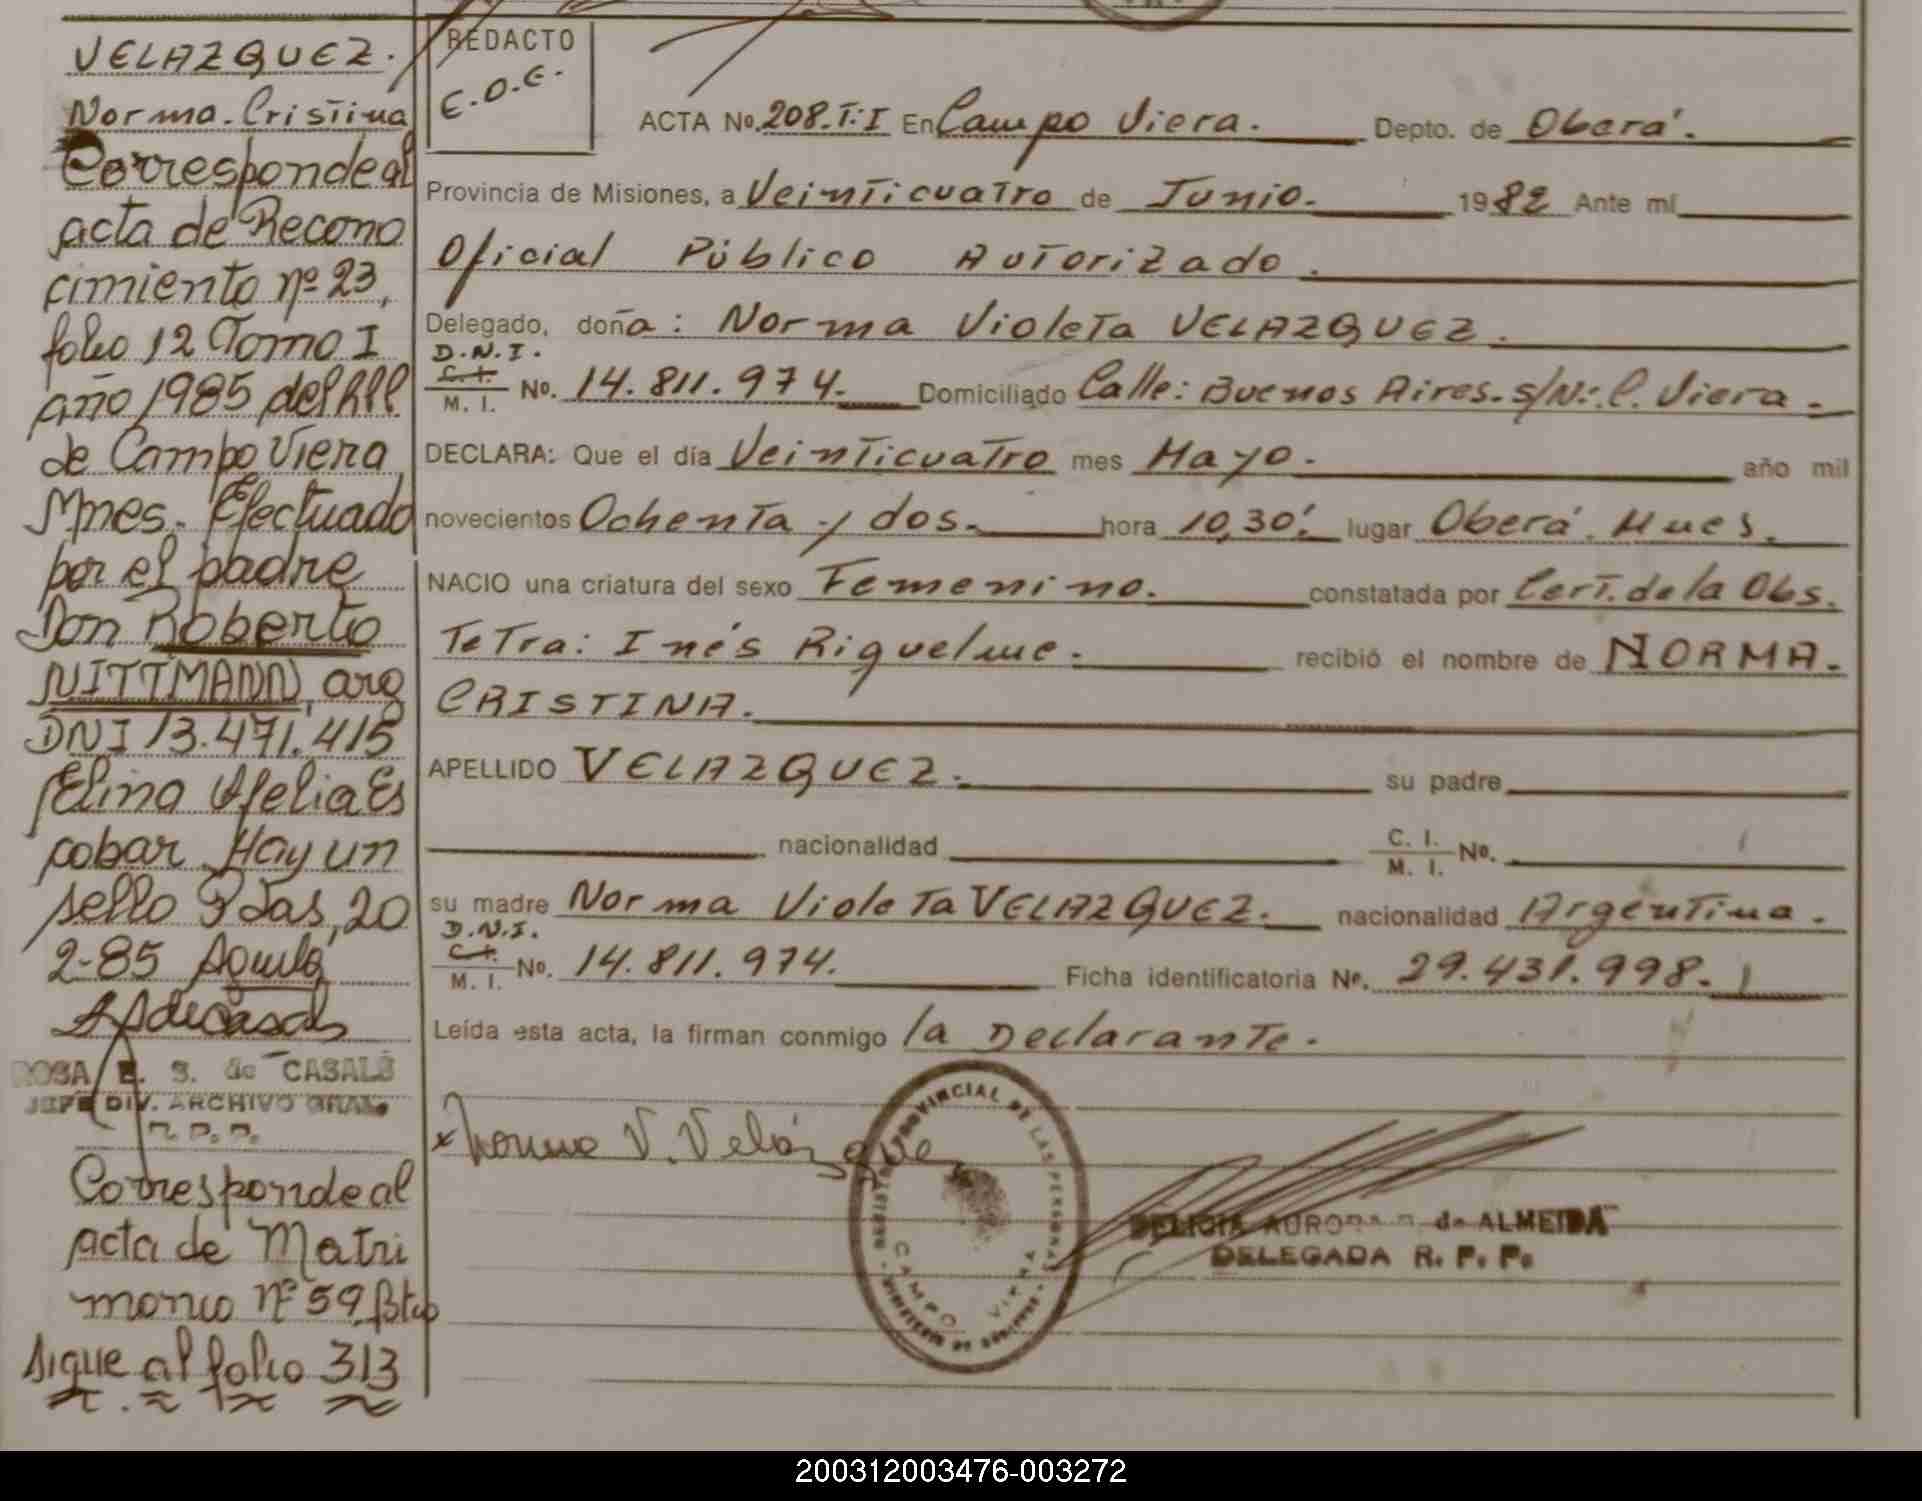 VELAZQUEZ.
Norma. Cristina
Corresponde al
acta de Recono
cimiento nº 23,
folio 12 Tomo I
año 1985 del
de Campo Viera
Mnes. Efectuado
por el padre
Don Roberto
NITTMANN, arg
DNI 13.471.415
Elina Ofelia Es
cobar. Hay un
sello Pdas, 20
2-85
ROSA E. S. de CASALS
JEFE DIV. ARCHIVO GRAL.
R. P. P.
Corresponde al
acta de Matri
monio Nº 59
sigue al folio 313
REDACTO
C.O.E.
ACTA No. 208. T: I En Campo Viera. Depto. de Oberá.
Provincia de Misiones, a Veinticuatro de Junio. 1982 Ante mí
Oficial Público Autorizado.
Delegado, doña: Norma Violeta VELAZQUEZ.
D.N.I.
C.I.
M. I. No. 14.811.974. Domiciliado Calle: Buenos Aires. s/N: C. Viera.
DECLARA: Que el día Veinticuatro mes Mayo. año mil
novecientos Ochenta y dos. hora 10,30'. lugar Oberá. Mnes.
NACIO una criatura del sexo Femenino. constatada por Cert. de la Obs.
Tetra: Inés Riquelme. recibió el nombre de NORMA.
CRISTINA.
APELLIDO VELAZQUEZ. su padre
nacionalidad C. I. M. I. No.
su madre Norma Violeta VELAZQUEZ. nacionalidad Argentina.
D.N.I.
C.I.
M. I. No. 14.811.974. Ficha identificatoria No. 29.431.998.
Leída esta acta, la firman conmigo la Declarante.
x Norma V. Velázquez
REGISTRO PROVINCIAL DE LAS PERSONAS
CAMPO VIERA
DELICIA AURORA de ALMEIDA
DELEGADA R. P. P.
200312003476-003272